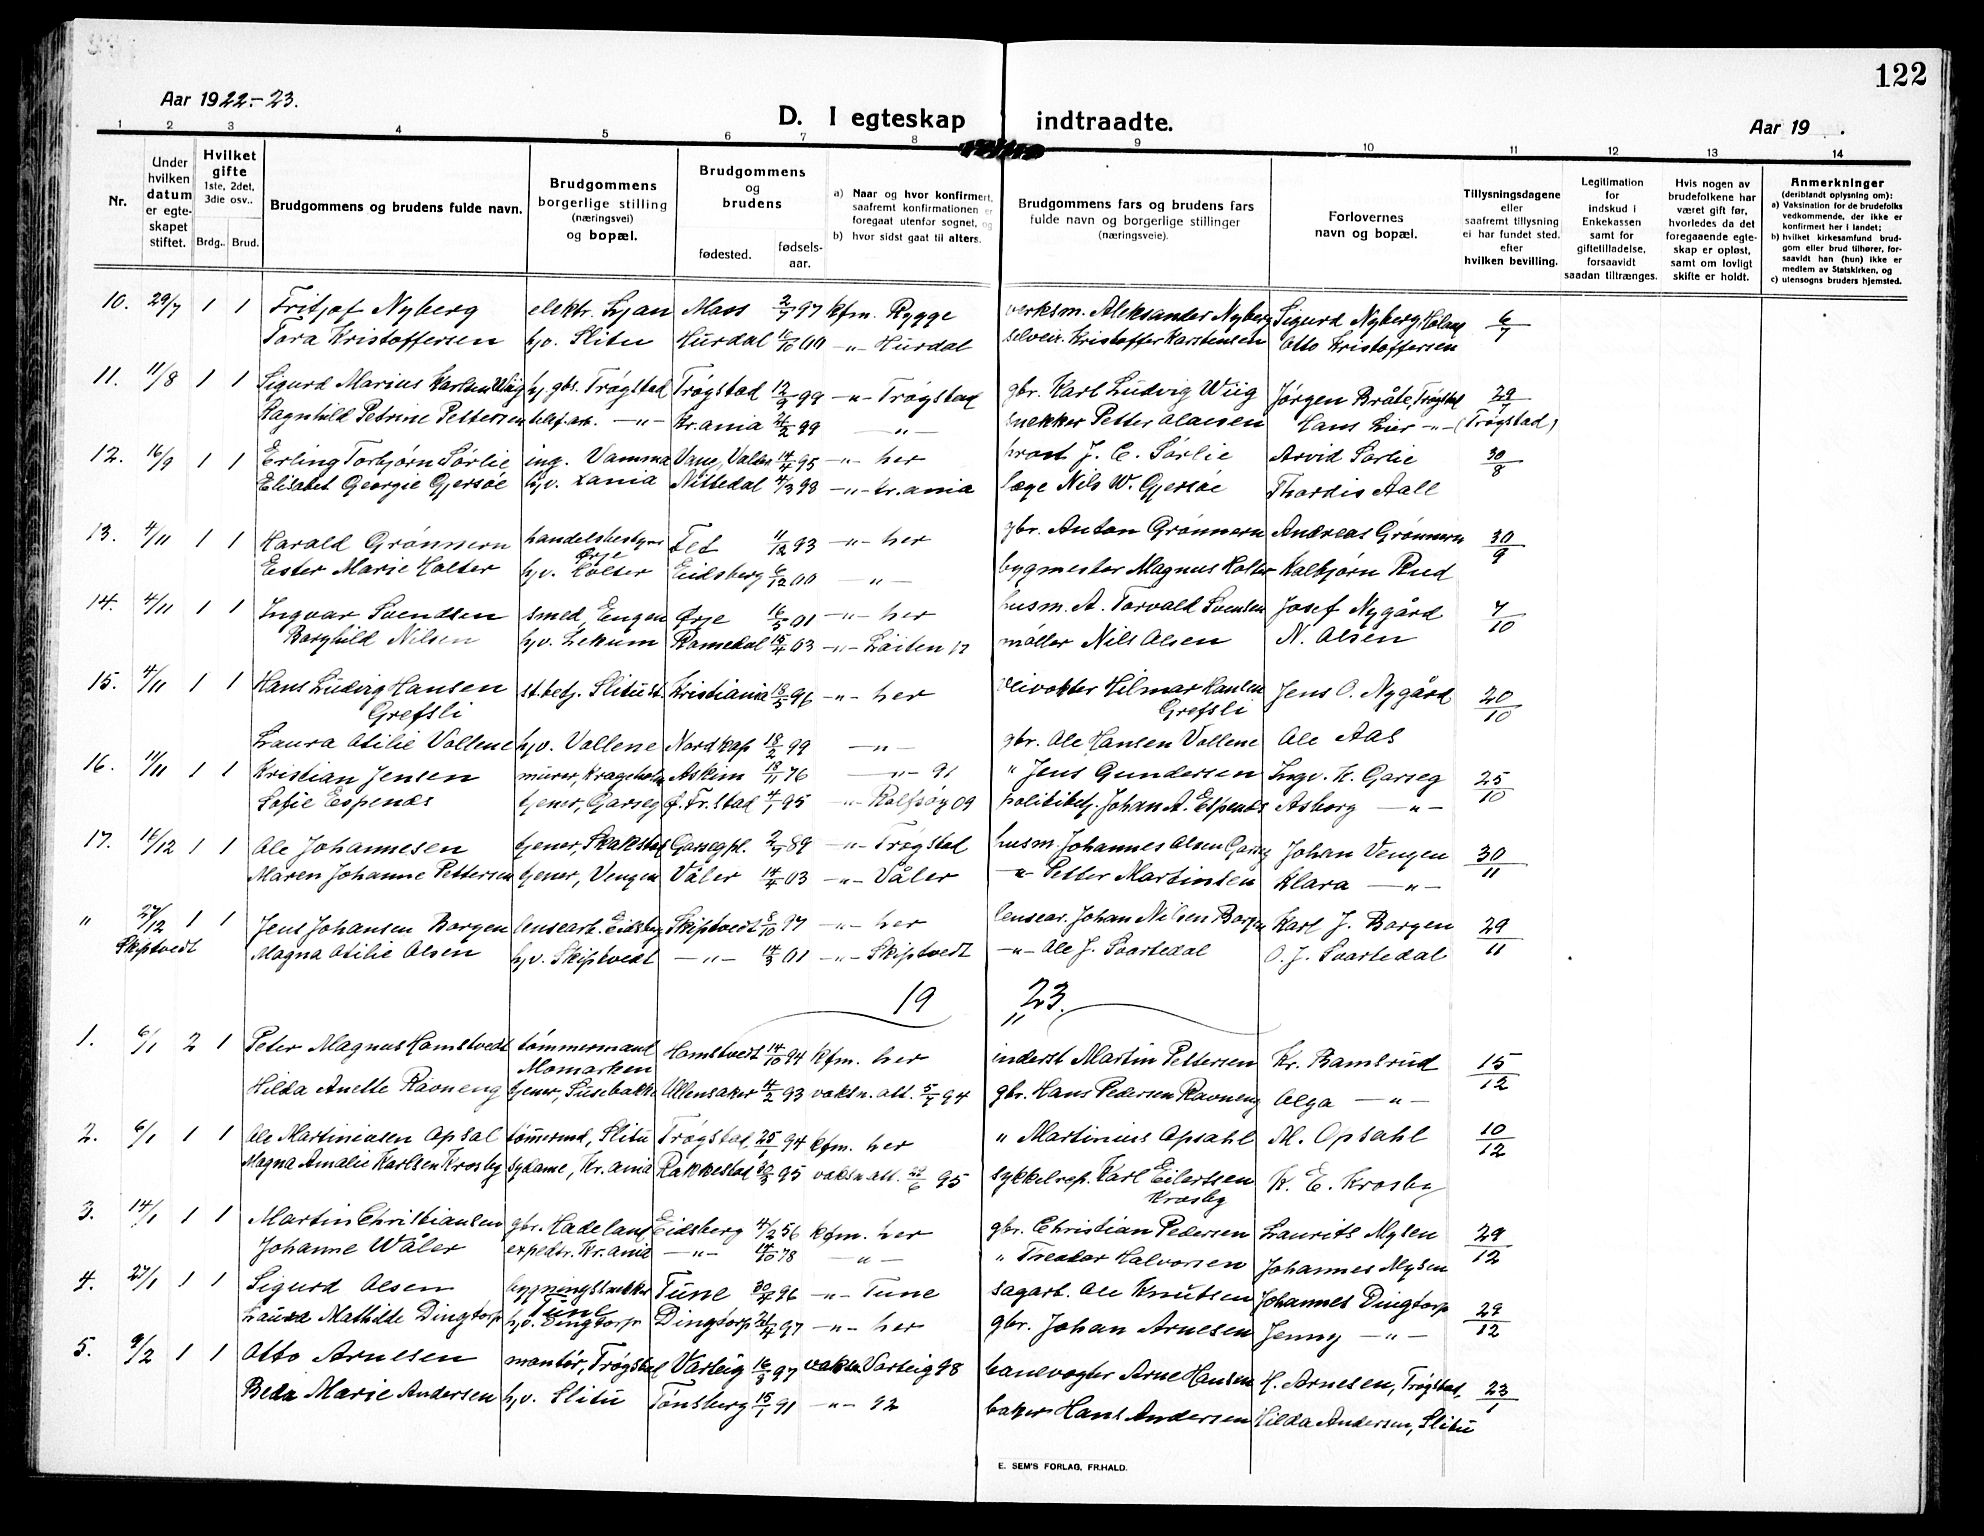 122
Aar 1922.-23.
D. I egteskap indtraadte.
Aar 19 .
1 2 3 4 5 6 7 8 9 10 11 12 13 14
Nr.
Under hvilken datum er egte-skapet stiftet.
Hvilket gifte 1ste, 2det, 3die osv..
Brdg.. Brud.
Brudgommens og brudens fulde navn.
Brudgommens borgerlige stilling (næringsvei) og bopæl.
Brudgommens og brudens
fødested. fødsels-aar.
a) Naar og hvor konfirmert, saafremt konfirmationen er foregaat utenfor sognet, og
b) hvor sidst gaat til alters.
Brudgommens fars og brudens fars fulde navn og borgerlige stillinger (næringsveie).
Forlovernes navn og bopæl.
Tillysningsdagene eller saafremt tillysning ei har fundet sted, efter hvilken bevilling.
Legitimation for indskud i Enkekassen samt for giftetilladelse, forsaavidt saadan tiltrænges.
Hvis nogen av brudefolkene har været gift før, hvorledes da det foregaaende egte-skap er opløst, samt om lovligt skifte er holdt.
Anmerkninger (deriblandt oplysning om):
a) Vaksination for de brudefolks vedkommende, der ikke er konfirmert her i landet;
b) hvilket kirkesamfund brud-gom eller brud tilhører, for-saavidt han (hun) ikke er medlem av Statskirken, og
c) utensogns bruders hjemsted.
10. 29/7 1 1 Fritjof Nyberg elektr. Ljan Moss 2/7 97 kfm. Rygge verksm. Aleksander Nyberg Sigurd Nyberg, 6/7
Tora Kristoffersen hjv. Slitu Hurdal 00 -"- Hurdal selveir. Kristoffer Karstensen Otto Kristoffersen
11. 11/8 1 1 Sigurd Marius Karlsen Wiig hj. gbs. Trøgstad Trøgstad 12/9 99 -"- Trøgstad gbr. Karl Ludvig Wiig Jørgen Bråte, Trøgstad 29/7
Ragnhild Petrine Pettersen telef.arb. -"- Kr.ania 99 -"- snekker Petter Olausen Hans Lier -"- (Trøgstad)
12. 16/9 1 1 Erling Torbjørn Sørlie ing. Vamma Vang, Valdr. 14/4 95 -"- her prost J. E. Sørlie Arvid Sørlie 30/8
Elisabet Georgie Gjersøe hjv. Xania Nittedal 4/3 98 -"- Kr.ania læge Nils W. Gjersøe Thordis Aall
13. 4/11 1 1 Harald Grønnern handelsbestyrer Ørje Fet 11/12 93 -"- her gbr. Anton Grønnern Andreas Grønnern 30/9
Ester Marie Holter hjv. Holter Eidsberg 6/12 00 -"- bygmester Magnus Holter Kolbjørn Rud
14. 4/11 1 1 Ingvar Svendsen smed, Engen Ørje 16/5 01 -"- her husm. A. Torvald Svensen Josef Nygård 7/10
Borghild Nilsen hjv. Lekum Ramedal 15/4 03 -"- Løiten 17 møller Nils Olsen N. Olsen
15. 4/11 1 1 Hans Ludvig Hansen Grefsli st.betj. Slitu st. Kristiania 18/5 96 -"- her veivokter Hilmar Hansen Grefsli Jens O. Nygård 20/10
Laura Otilie Vollene hjv. Vollene Nordkap 18/2 99 -"- gbr. Ole Hansen Vollene Ole Aas
16. 11/11 1 1 Kristian Jensen murer, Krageholm Askim 18/11 76 -"- 91 " Jens Gundersen Ingv. H. Garseg 25/10
Sofie Espenæs tjener, Garseg Ø. Fr.stad 4/1 95 -"- Rolfsøy 09 politibtj. Johan A. Espenæs Asborg -"-
17. 16/12 1 1 Ole Johannesen tjener, Skakstad Garsegpl. 2/7 89 -"- Trøgstad husm. Johannes Olsen Garseg Johan Vengen 30/11
Maren Johanne Pettersen tjener, Vengen Våler 14/4 03 -"- Våler -"- Petter Martinsen Klara -"-
" 27/12 1 1 Jens Johansen Borgen lensearb. Eidsberg Skiptvedt 8/10 97 -"- her lensear. Johan Nilsen Borgen Karl J. Borgen 29/11
Skiptvedt Magna Otilie Olsen hjv. Skiptvedt -"- 14/3 01 -"- Skiptvedt -"- Ole J. Svartedal O. J. Svartedal
19 23.
1. 6/1 2 1 Peter Magnus Homstvedt tømmermand Momarken Homstvedt 14/10 94 kfm. her inderst Martin Pettersen Kr. Bamsrud 15/12
Hilda Anette Ravneng tjener, Susebakke Ullensaker 4/2 93 vaksn. att. 5/7 94 gbr. Hans Pedersen Ravneng Olga -"-
2. 6/1 1 1 Ole Martiniusen Opsal tømermd, Slitu Trøgstad, 25/1 94 kfm. her " Martinius Opsahl M. Opsahl 10/12
Magna Amalie Karlsen Krosby sydame, Kr.ania Rakkestad 30/3 95 vaksn att. 95 sykkelrep. Karl Eilertsen Krosby K. E. Krosby
3. 14/1 1 1 Martin Christiansen gbr. Hadeland Eidsberg 4/2 56 kfm. her gbr. Christian Pedersen Laurits Mysen 29/12
Johanne Wåler expedtr. Kr.ania -"- 14/10 78 -"- " Theodor Halvorsen Johannes Mysen
4. 27/1 1 1 Sigurd Olsen bygningssnekker Tune Tune 30/4 96 -"- Tune sagarb. Ole Knutsen Johannes Dingtorp 29/12
Laura Mathilde Dingtorp hjv. Dingtorp Dingtorp 97 -"- her gbr. Johan Arnesen Jenny -"-
5. 9/2 1 1 Otto Arnesen montør, Trøgstad Varteig 16/3 97 vaksn. Varteig 98 banevogter Arne Hansen H. Arnesen, Trøgstad, 23/1
Beda Marie Andersen hjv. Slitu Tønsberg 15/1 91 -"- 92 baker Hans Andersen Hilda Andersen, Slitu
E. SEM'S FORLAG, FR.HALD.